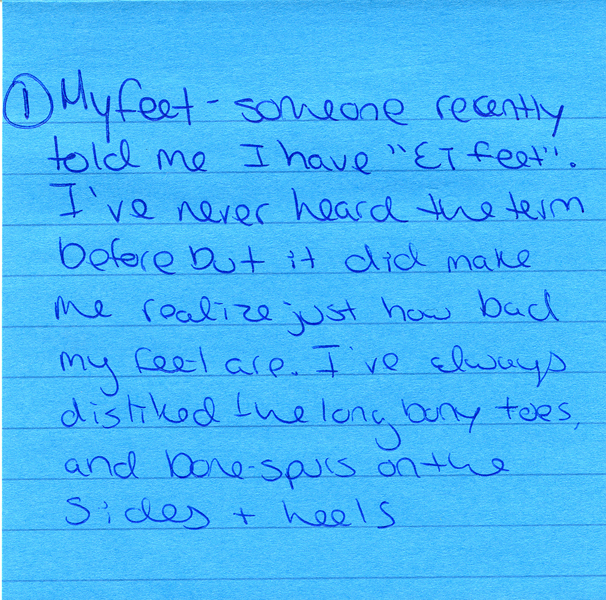 ① My feet - someone recently
told me I have "ET feet".
I've never heard the term
before but it did make
me realize just how bad
my feet are. I've always
disliked the long, bony toes,
and bone-spurs on the
sides + heels